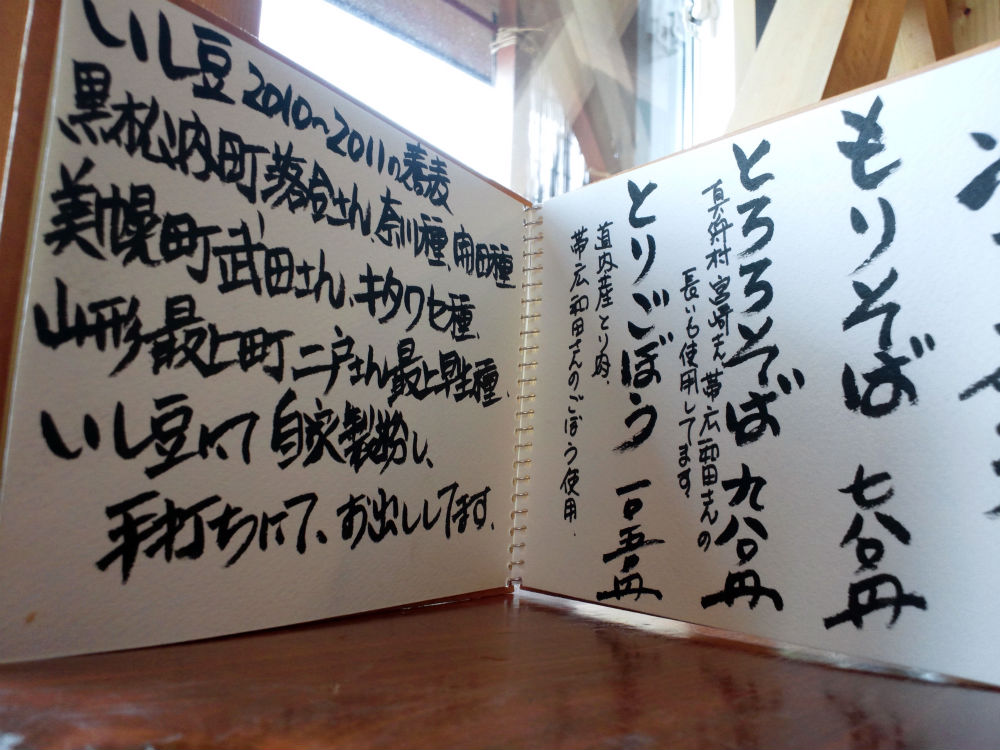 いし豆 2010〜2011の蕎麦
黒松内町 落合さん、奈川種、開田種
美幌町 武田さん、キタワセ種、
山形 最上町 二戸さん 最上早生種、
いし豆にて 自家製粉し、
手打ちにて、お出ししてます。
もりそば 七八〇円
とろろそば 九八〇円
真狩村 宮崎さん、帯広和田さんの
長いも使用してます。
とりごぼう 一〇五〇円
道内産とり肉、
帯広和田さんのごぼう使用.